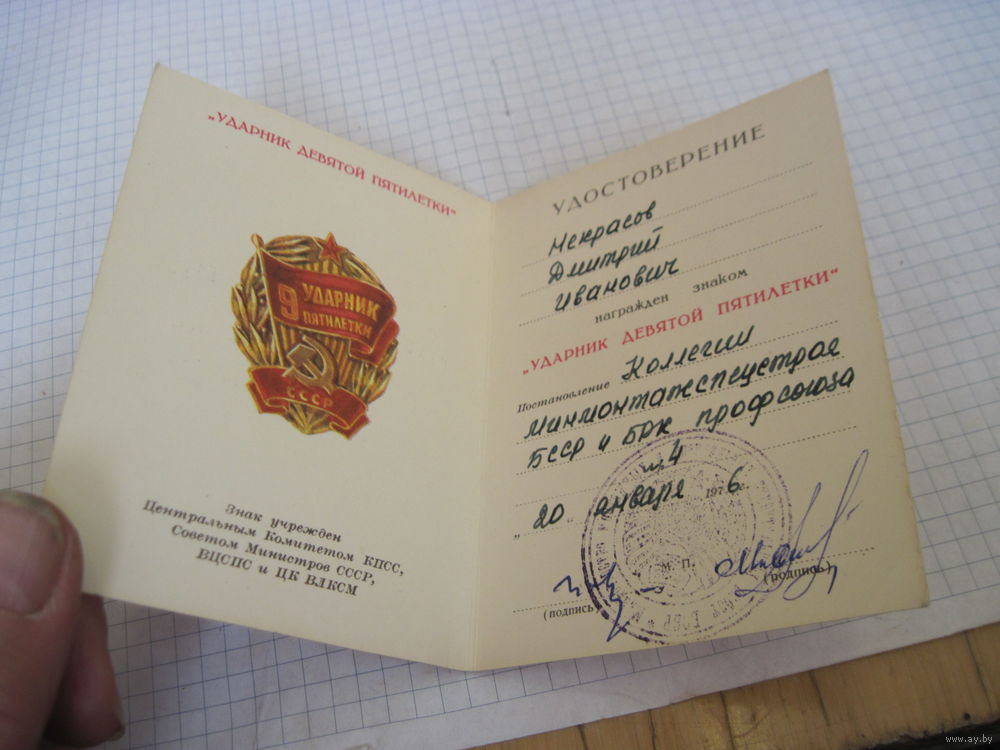 „УДАРНИК ДЕВЯТОЙ ПЯТИЛЕТКИ“
9 УДАРНИК
ПЯТИЛЕТКИ
СССР
Знак учрежден
Центральным Комитетом КПСС,
Советом Министров СССР,
ВЦСПС и ЦК ВЛКСМ
УДОСТОВЕРЕНИЕ
Некрасов
Дмитрий
Иванович
награжден знаком
„УДАРНИК ДЕВЯТОЙ ПЯТИЛЕТКИ“
Постановление Коллегии
Минмонтажспецстроя
БССР и БРК профсоюза
№4
„20 „ января 1976 г.
М. П.
(подпись) (подпись)
www.ay.by